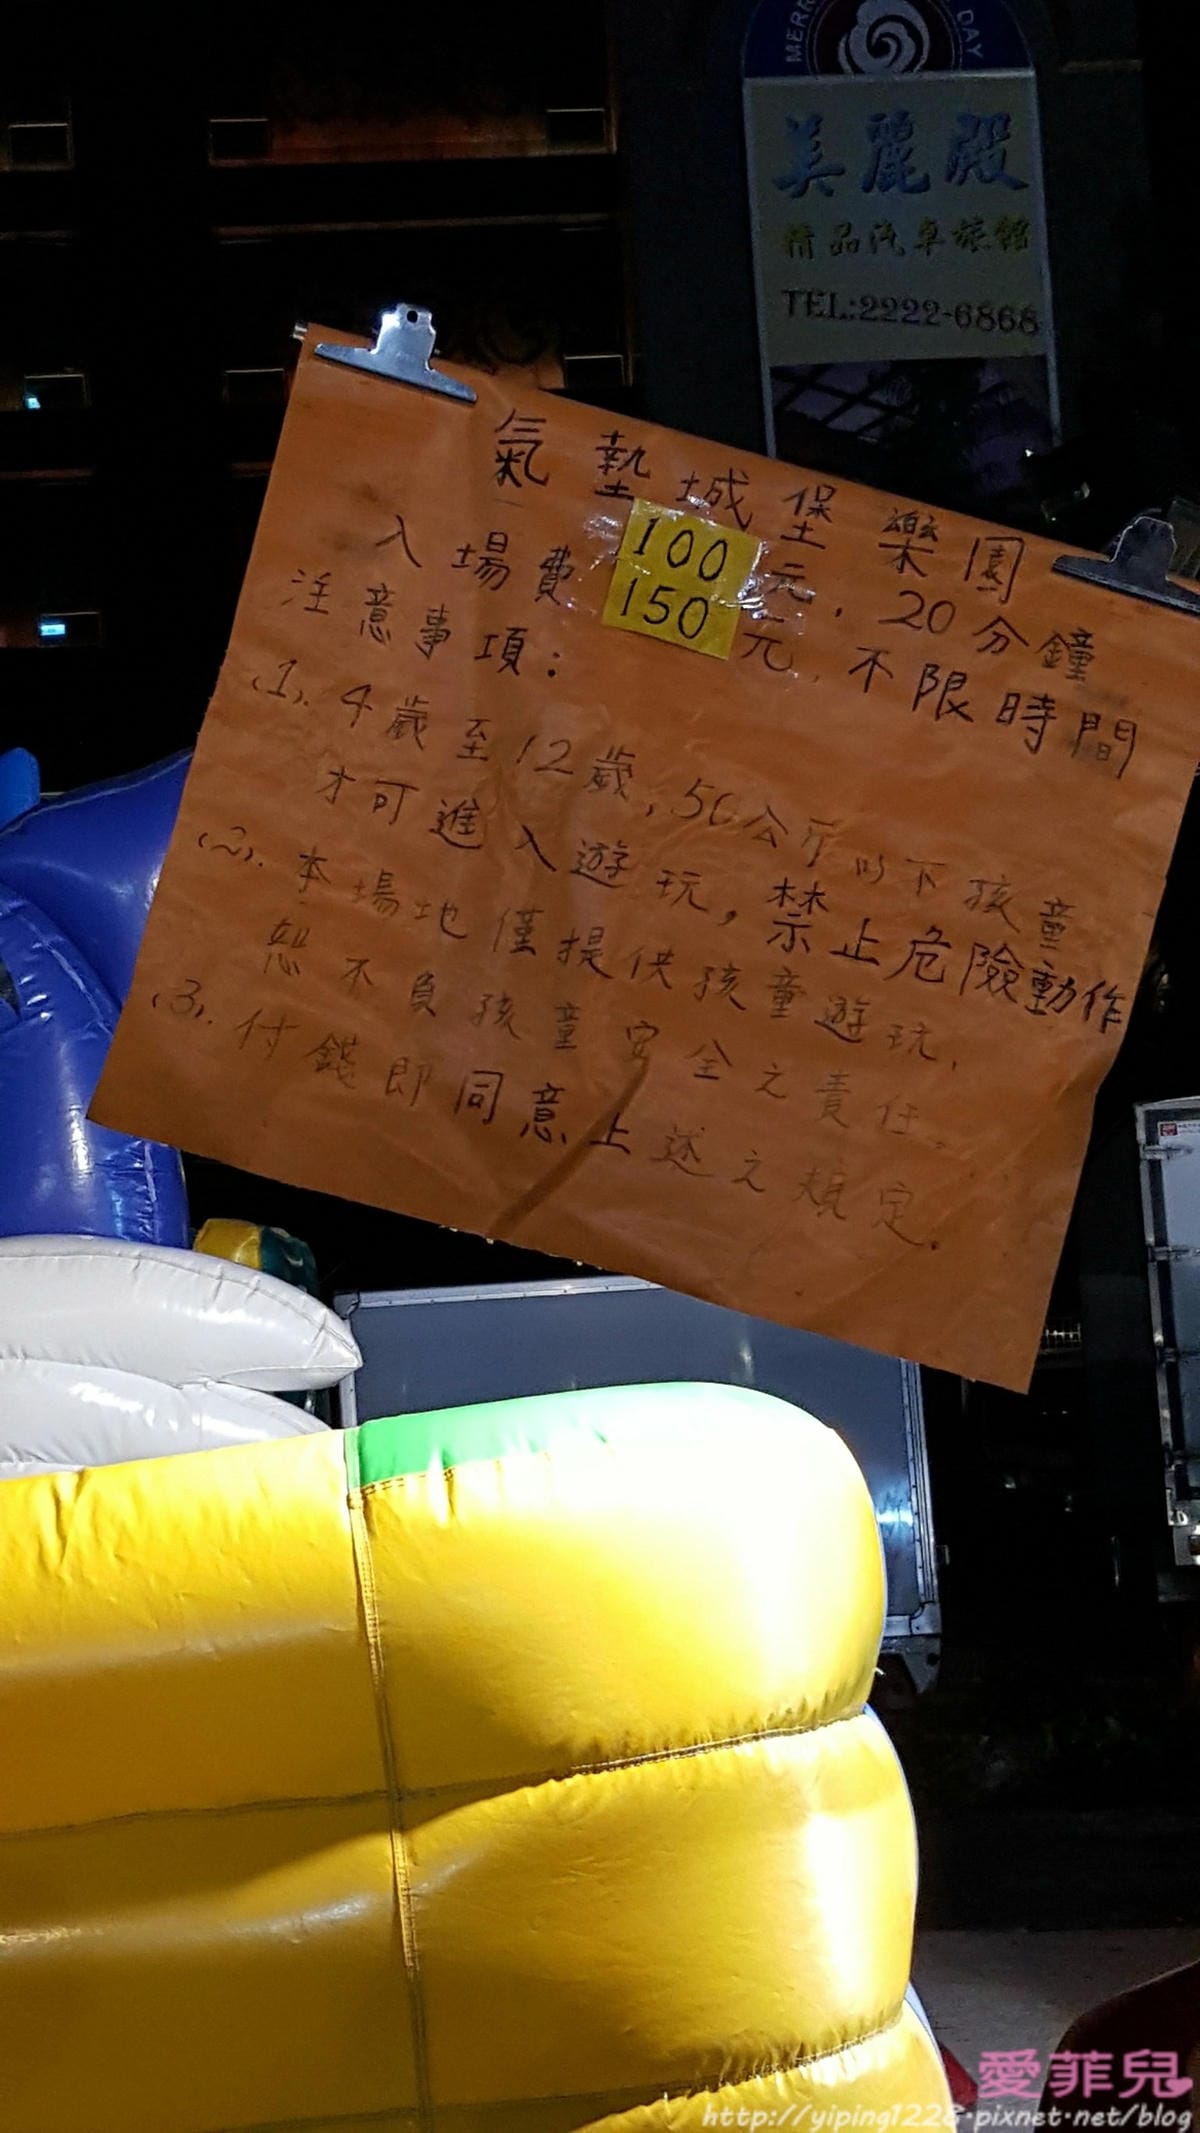 DAY
美麗殿
精品汽車旅館
TEL:2222-6868
氣墊城堡樂園
入場費100元,20分鐘
150元,不限時間
注意事項:
(1).4歲至12歲,50公斤以下孩童
才可進入遊玩,禁止危險動作
(2).本場地僅提供孩童遊玩,
恕不負孩童安全之責任。
(3).付錢即同意上述之規定.
愛菲兒
http://yiping1228.pixnet.net/blog